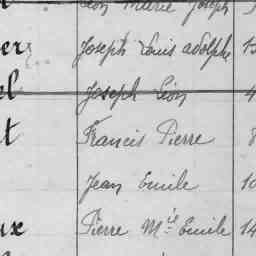 Léon Marie Joseph
er Joseph Louis adolphe 13
el Joseph Léon 4
t Francis Pierre 8
Jean Emile 10
ux Pierre Mie Emile 14